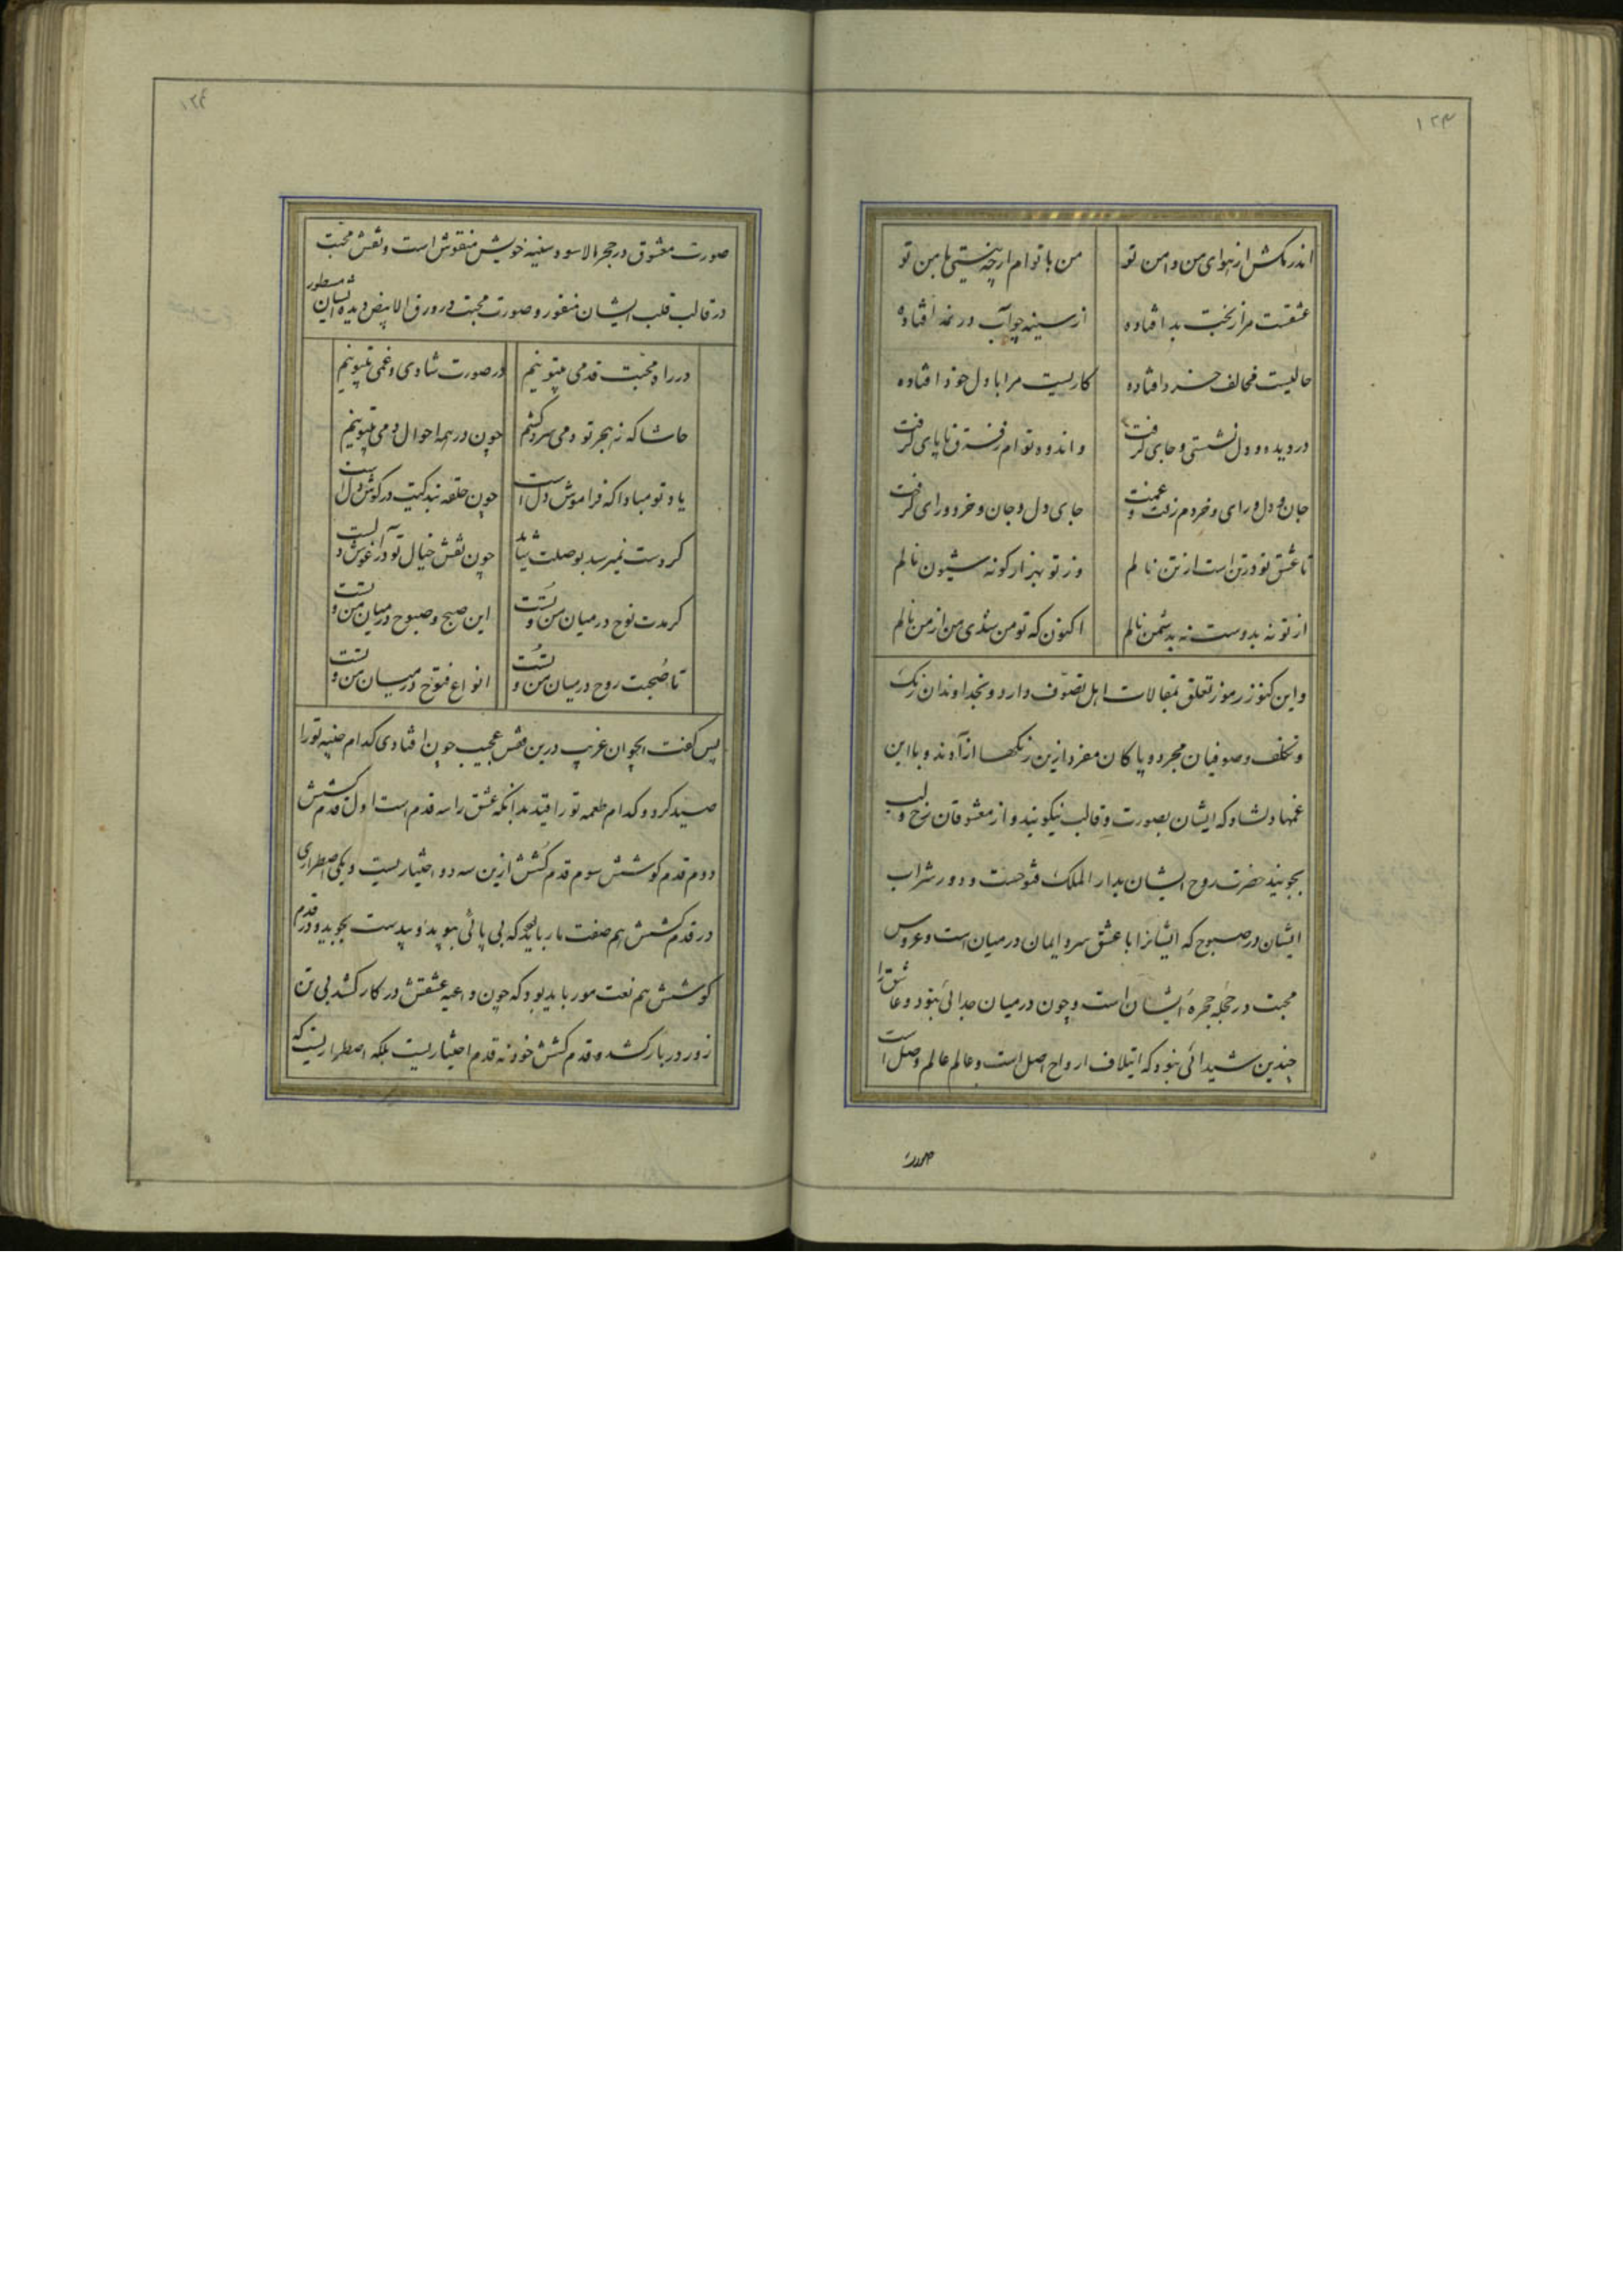 ۱۲۳
اندر مکش از هوای من دامن تو من با توام ارچه نیستی با من تو
عشقست مرا ز بخت بد افتاده از سینه چو آب در نمد افتاده
حالیست مخالف خرد افتاده کاریست مرا با دل خود افتاده
در دیده و دل نشستی و جای گرفت و اندوه توام ز فرق تا پای گرفت
جان و دل و رای و خردم رفت و غمت جای دل و جان و خرد و رای گرفت
تا عشق تو در تن است از تن نالم وز تو بهزار گونه شیون نالم
از تو نه بدوست نه بدشمن نالم اکنون که تو من شدی من از من نالم
و این کنوز رموز تعلق بمقالات اهل تصوّف دارد و بخداوندان رنک
و تکلف و صوفیان مجرد و پاکان مفرد ازین رنکها آزادند و با این
غمها دلشاد که ایشان بصورت و قالب نیکویند و از معشوقان رخ و لب
نجویند حضرت روح ایشان بدار الملک فتوحست و دور شراب
ایشان در صبوح که ایشانرا با عشق سر و ایمان در میان است و عروس
محبت در حجله حجرهٔ ایشان است و چون در میان جدائی نبود و عاشق را
چندین شیدائی نبود که ایتلاف ارواح اصل است و عالم عالم وصل است
صورت
۱۲۴
صورت معشوق در حجر الاسود سینه خویش منقوش است و نقش محبت
در قالب قلب ایشان منقور و صورت محبت در ورق الابیض دیده ایشان مسطور
در راه محبت قدمی بیتو نیم در صورت شادی و غمی بیتو نیم
حاشا که ز هجر تو دمی سرد کشم چون در همه احوال دمی بیتو نیم
یاد تو مبادا که فراموش دل است چون حلقه بندکیت در کوش دل است
کر دست نمیرسد بوصلت شاید چون نقش خیال تو در آغوش دلست
کر مدت نوح در میان من و تست این صبح و صبوح در میان من و تست
تا صحبت روح در میان من و تست انواع فتوح در میان من و تست
پس کفت ایجوان غریب درین قفس عجیب چون افتادی کدام حنیه تو را
صید کرد و کدام طعمه تو را قید بدانکه عشق را سه قدم است اول قدم کشش
دوم قدم کوشش سوم قدم کُشش ازین سه دو اختیاریست و یکی اضطراری
در قدم کشش هم صفت مار باید که بی پائی بپوید و بیدست بجوید و در قدم
کوشش هم نعت مور باید بود که چون داعیه عشقش در کار کشد بی تن
زور در بار کشد و قدم کشش خود نه قدم اختیاریست بلکه اضطراریست که